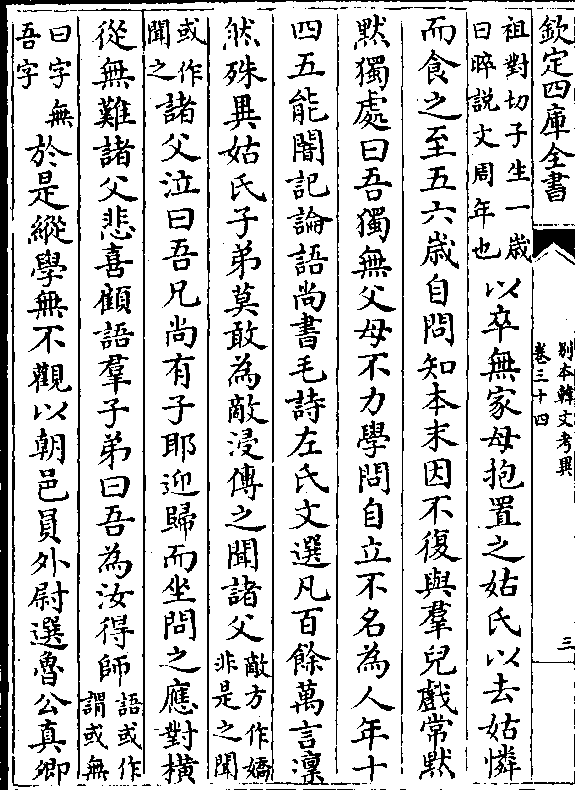 欽定四庫全書
別本韓文考異
卷三十四
三
祖對切子生一歳
曰晬説文周年也以卒無家母抱置之姑氏以去姑憐
而食之至五六歳自問知本末因不復與羣兒戲常默
黙獨處曰吾獨無父母不力學問自立不名為人年十
四五能闇記論語尚書毛詩左氏文選凡百餘萬言凛
然殊異姑氏子弟莫敢為敵浸傳之聞諸父敵方作嬌
非是之聞
或作
聞之諸父泣曰吾兄尚有子耶迎歸而坐問之應對横
從無難諸父悲喜顧語羣子弟曰吾為汝得師語或作
謂或無
曰字無
吾字於是縱學無不觀以朝邑員外尉選魯公真卿